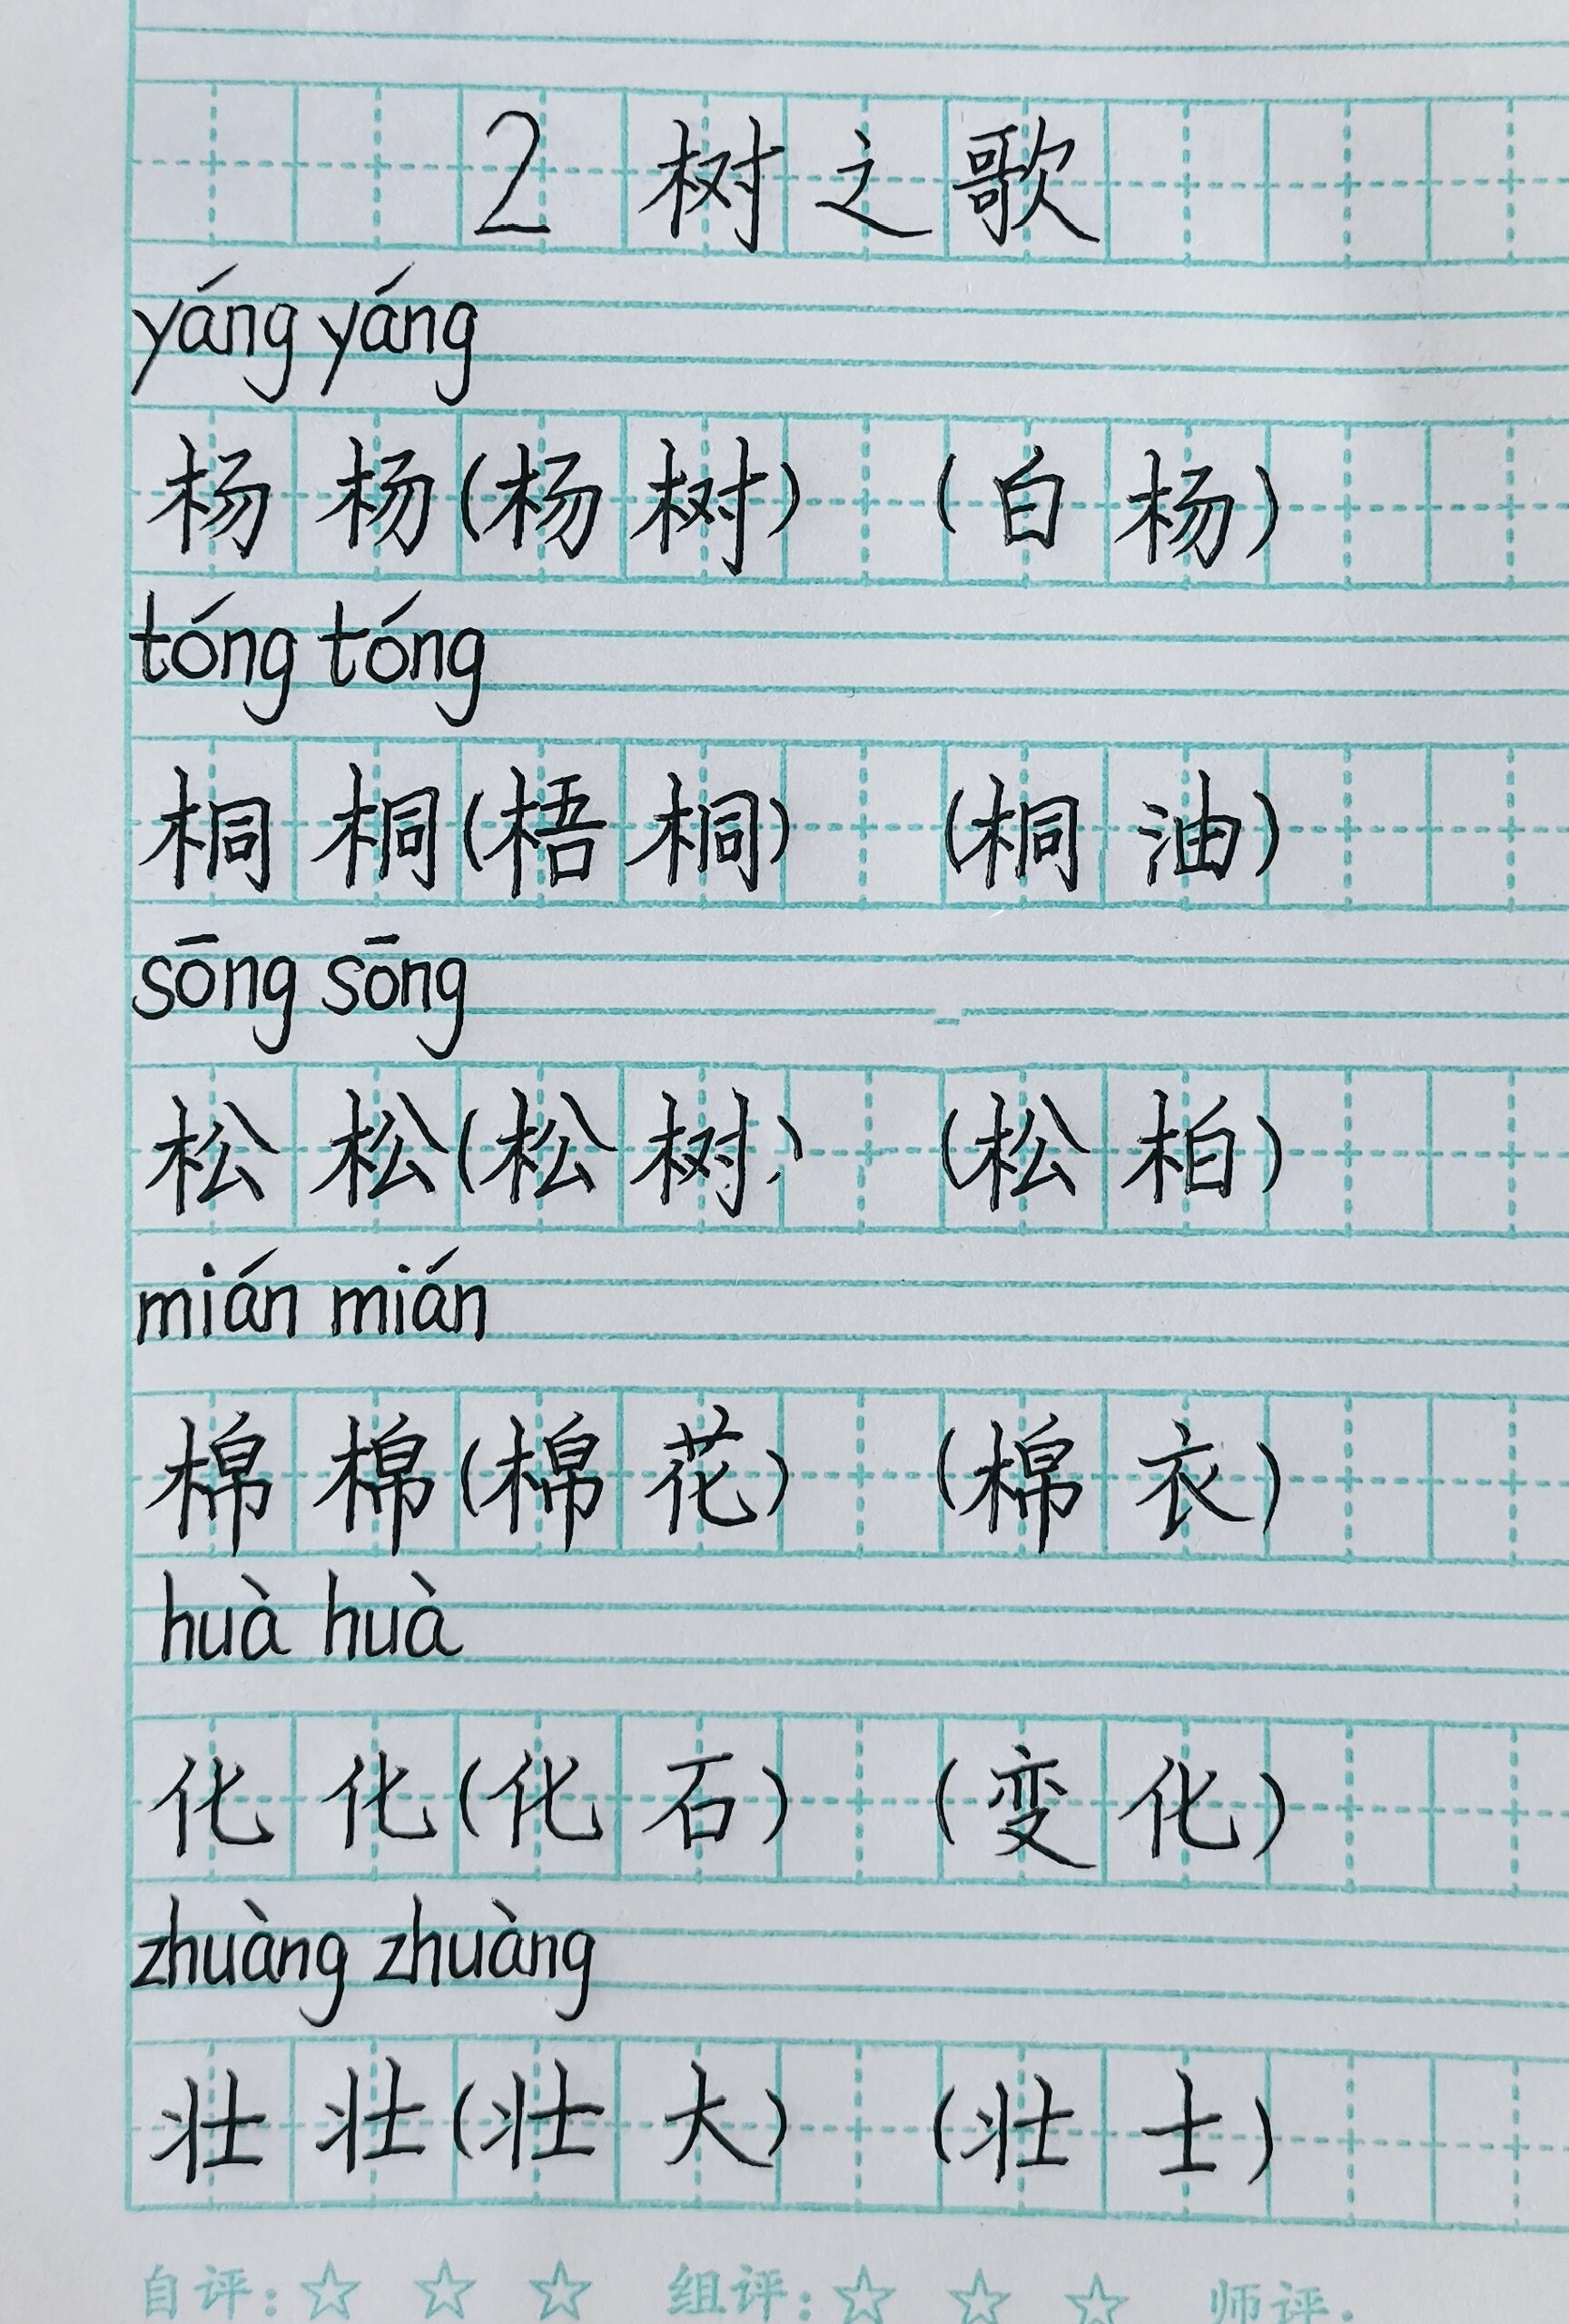 2 树之歌
yáng yáng
杨 杨(杨树) (白杨)
tóng tóng
桐 桐(梧桐) (桐油)
sōng sōng
松 松(松树) (松柏)
mián mián
棉 棉(棉花) (棉衣)
huà huà
化 化(化石) (变化)
zhuàng zhuàng
壮 壮(壮大) (壮士)
自评:☆ ☆ ☆ 组评:☆ ☆ ☆ 师评: